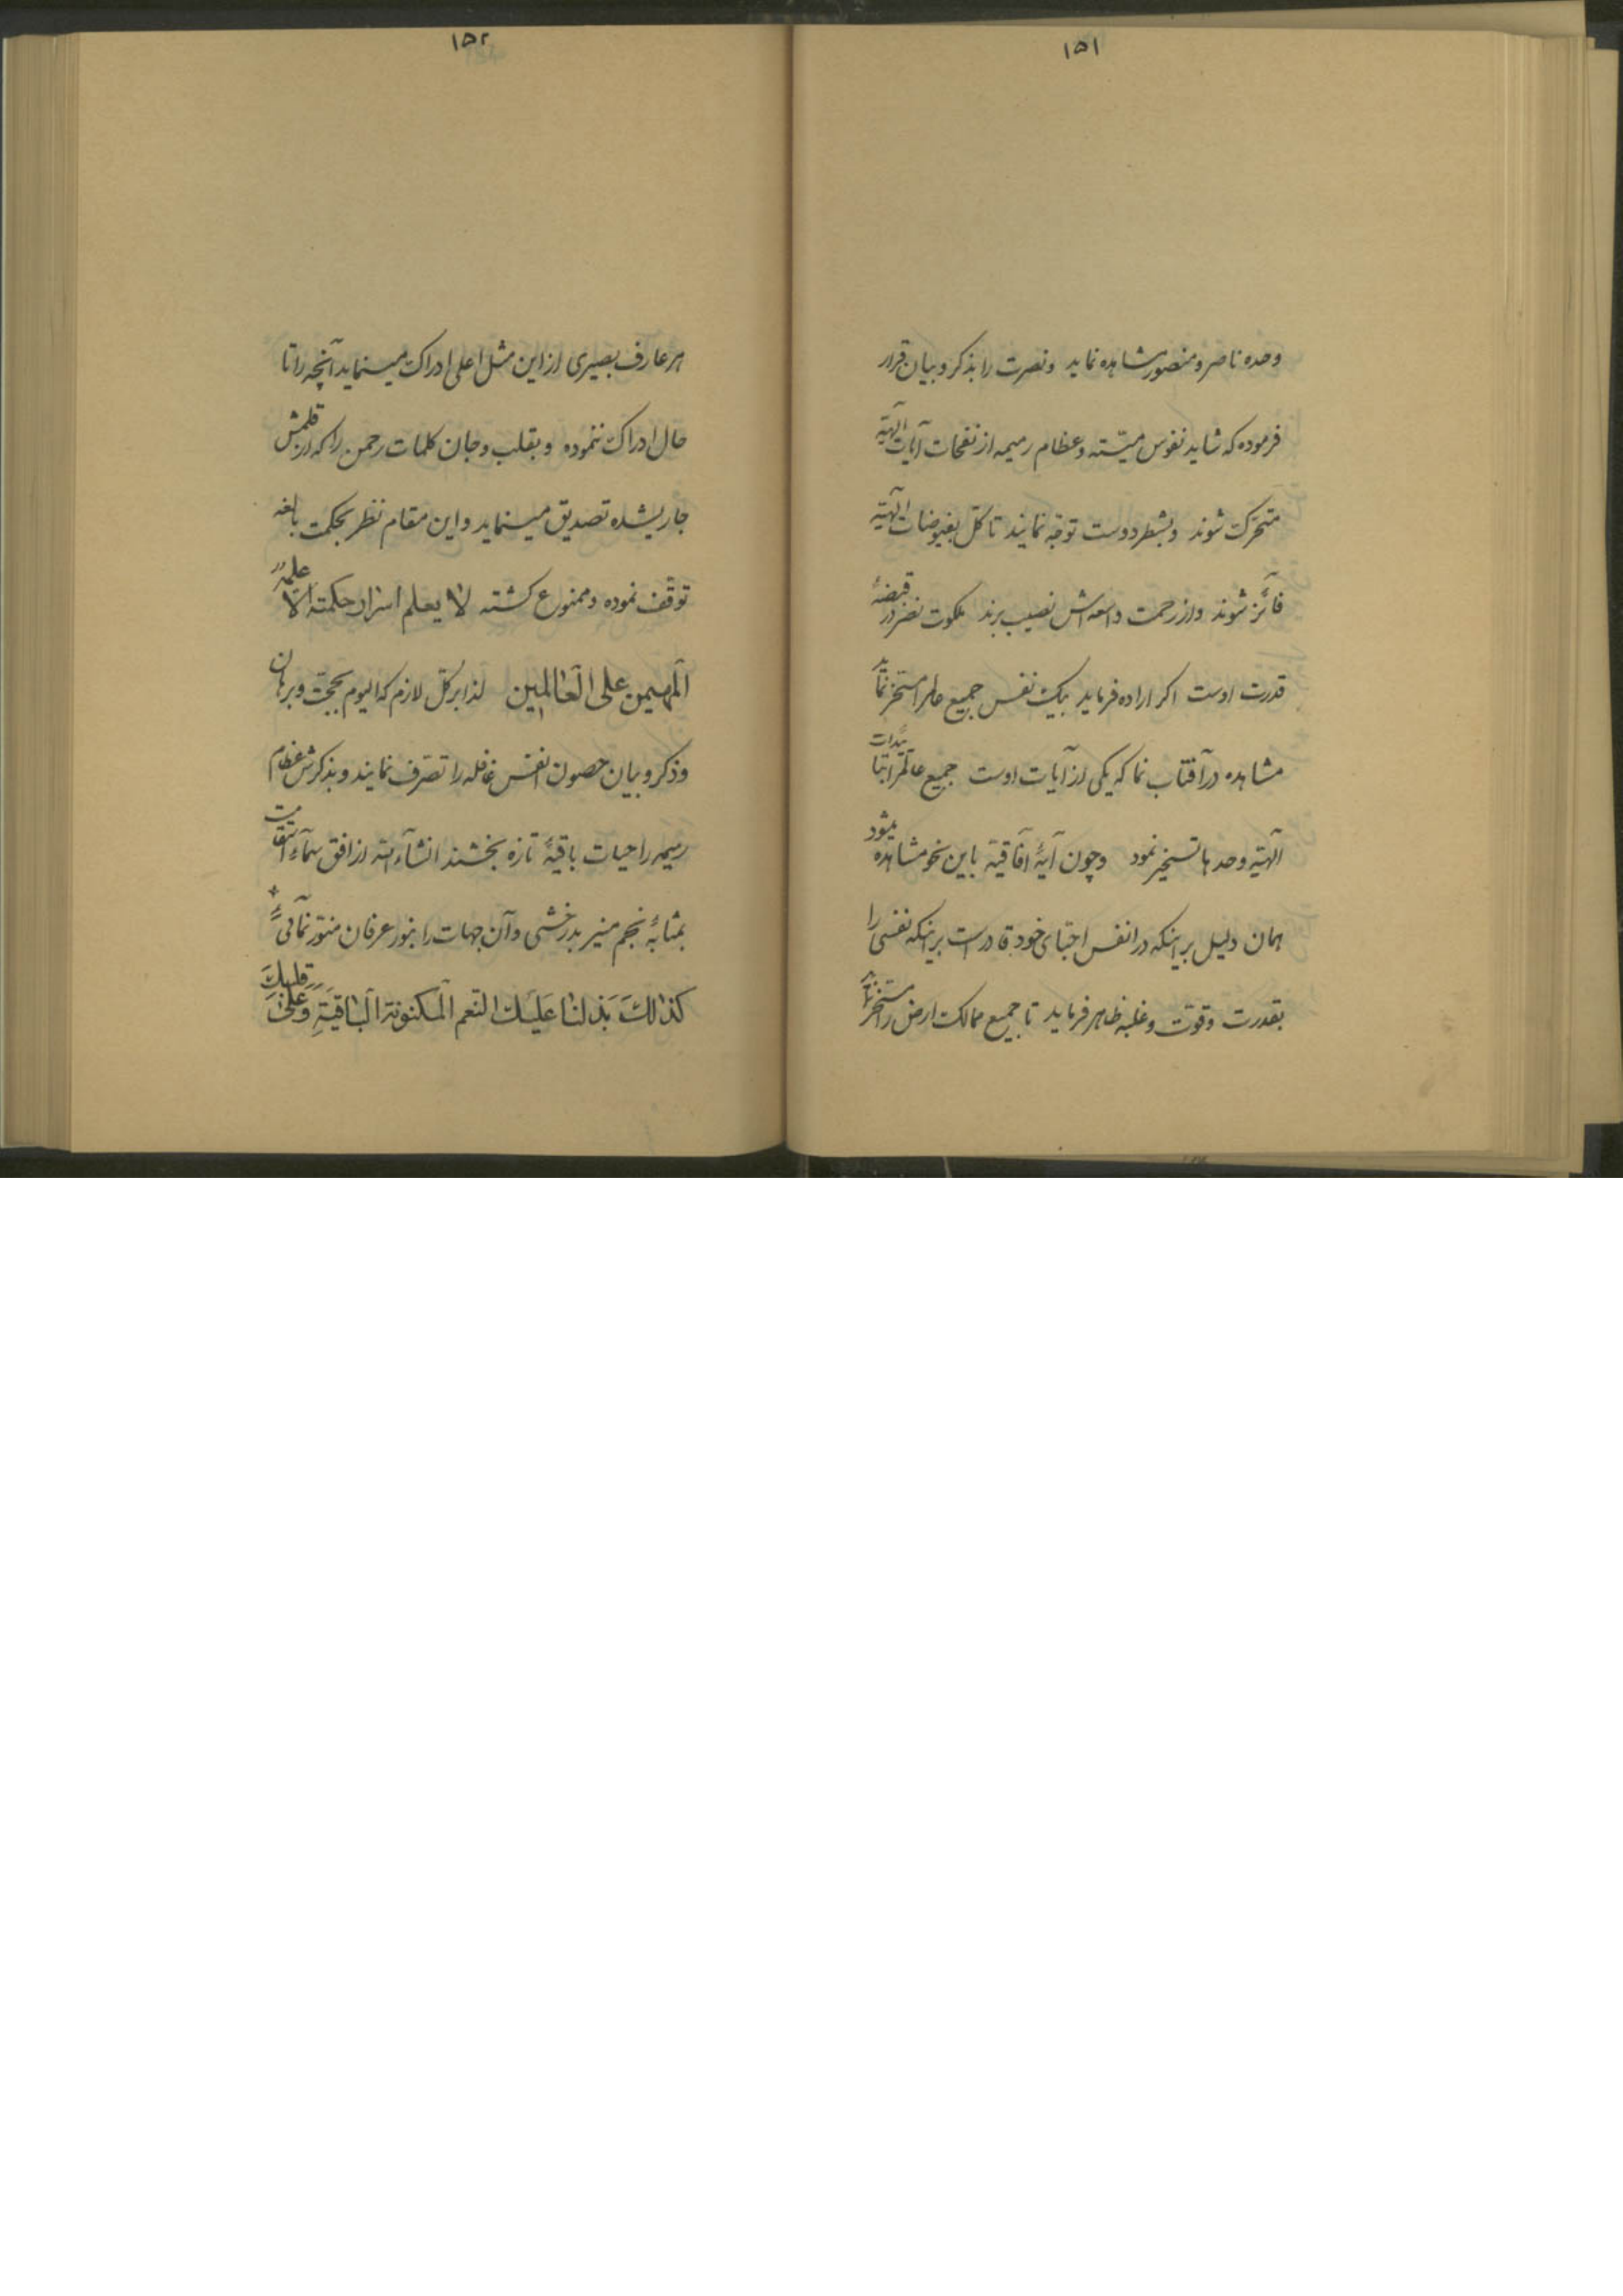 ۱۵۱
وحده ناصر و منصور مشاهده نماید و نصرت را بذکر و بیان قرار
فرموده که شاید نفوس میّته و عظام رمیمه از نفحات آیات الهیّه
متحرّک شوند و بشطر دوست توجّه نمایند تا کلّ بفیوضات الهیّه
فائز شوند و از رحمت واسعه‌اش نصیب برند ملکوت نصر در قبضهٔ
قدرت اوست اکر اراده فرماید بیک نفس جمیع را مسخّر نماید
مشاهده در آفتاب نما که یکی از آیات اوست جمیع عالم را بتأییدات
الهیّه وحدها تسخیر نمود و چون آیهٔ آفاقیّه باین نحو مشاهده میشود
همان دلیل بر اینکه در انفس احبّای خود قادر است بر اینکه نفسی را
بقدرت و قوّت و غلبه ظاهر فرماید تا جمیع ممالک ارض را مسخّر نماید
۱۵۲
هر عارف بصیری از این مثل اعلی ادراک مینماید آنچه را تا
حال ادراک ننموده و بقلب و جان کلمات رحمن را که از قلمش
جاریشده تصدیق مینماید و این مقام نظر بحکمت بالغه
توقّف نموده و ممنوع کشته لا یعلم اسرار حکمته الّا علمه
المهیمن علی العالمین لذا بر کلّ لازم که الیوم بحجّت و برهان
و ذکر و بیان حصون انفس غافله را تصرّف نمایند و بذکرش عظام
رمیمه را حیات باقیهٔ تازه بخشند انشآءالله از افق سمآء استقامت
بمثابهٔ نجم منیر بدرخشی و آن جهات را بنور عرفان منوّر نمائی
کذلک بَذلنا عَلَیک النّعم المکنونة الباقیَةِ وَ علی قلبِکَ